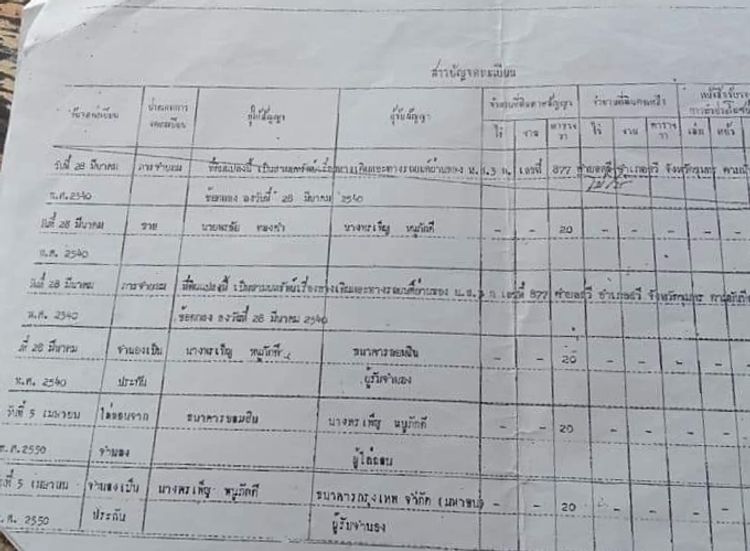 สารบัญจดทะเบียน
จดทะเบียน ประเภทการ ผู้ให้สัญญา ผู้รับสัญญา จำนวนที่ดินตามสัญญา จำนวนที่ดินคงเหลือ หนังสือรับรอง
จดทะเบียน ไร่ งาน ตาราง ไร่ งาน ตาราง เล่ม หน้า
วา วา
วันที่ 28 มีนาคม ภารจำยอม ที่ดินแปลงนี้ เป็นสามยทรัพย์เรื่องทางเดินและทางรถยนต์ผ่านของ น.ส.3 ก. เลขที่ 877 ตำบล อำเภอ จังหวัด ตามบันทึก
พ.ศ. 2540 ข้อตกลง ลงวันที่ 28 มีนาคม 2540
วันที่ 28 มีนาคม ขาย นายพรชัย ทองคำ นางพรเพ็ญ หนูภักดี - - 20 - - - - -
พ.ศ. 2540
วันที่ 28 มีนาคม ภารจำยอม ที่ดินแปลงนี้ เป็นสามยทรัพย์เรื่องทางเดินและทางรถยนต์ผ่านของ น.ส.3 ก เลขที่ 877 ตำบล อำเภอ จังหวัด ตามบันทึก
พ.ศ. 2540 ข้อตกลง ลงวันที่ 28 มีนาคม 2540
ที่ 28 มีนาคม จำนองเป็น นางพรเพ็ญ หนูภักดี ธนาคารออมสิน - - 20 - - - - -
พ.ศ. 2540 ประกัน ผู้รับจำนอง
วันที่ 5 เมษายน ไถ่ถอนจาก ธนาคารออมสิน นางพรเพ็ญ หนูภักดี - - 20 - - - - -
พ.ศ. 2550 จำนอง ผู้ไถ่ถอน
วันที่ 5 เมษายน จำนองเป็น นางพรเพ็ญ หนูภักดี ธนาคารกรุงเทพ จำกัด (มหาชน) - - 20 - - - - -
พ.ศ. 2550 ประกัน ผู้รับจำนอง